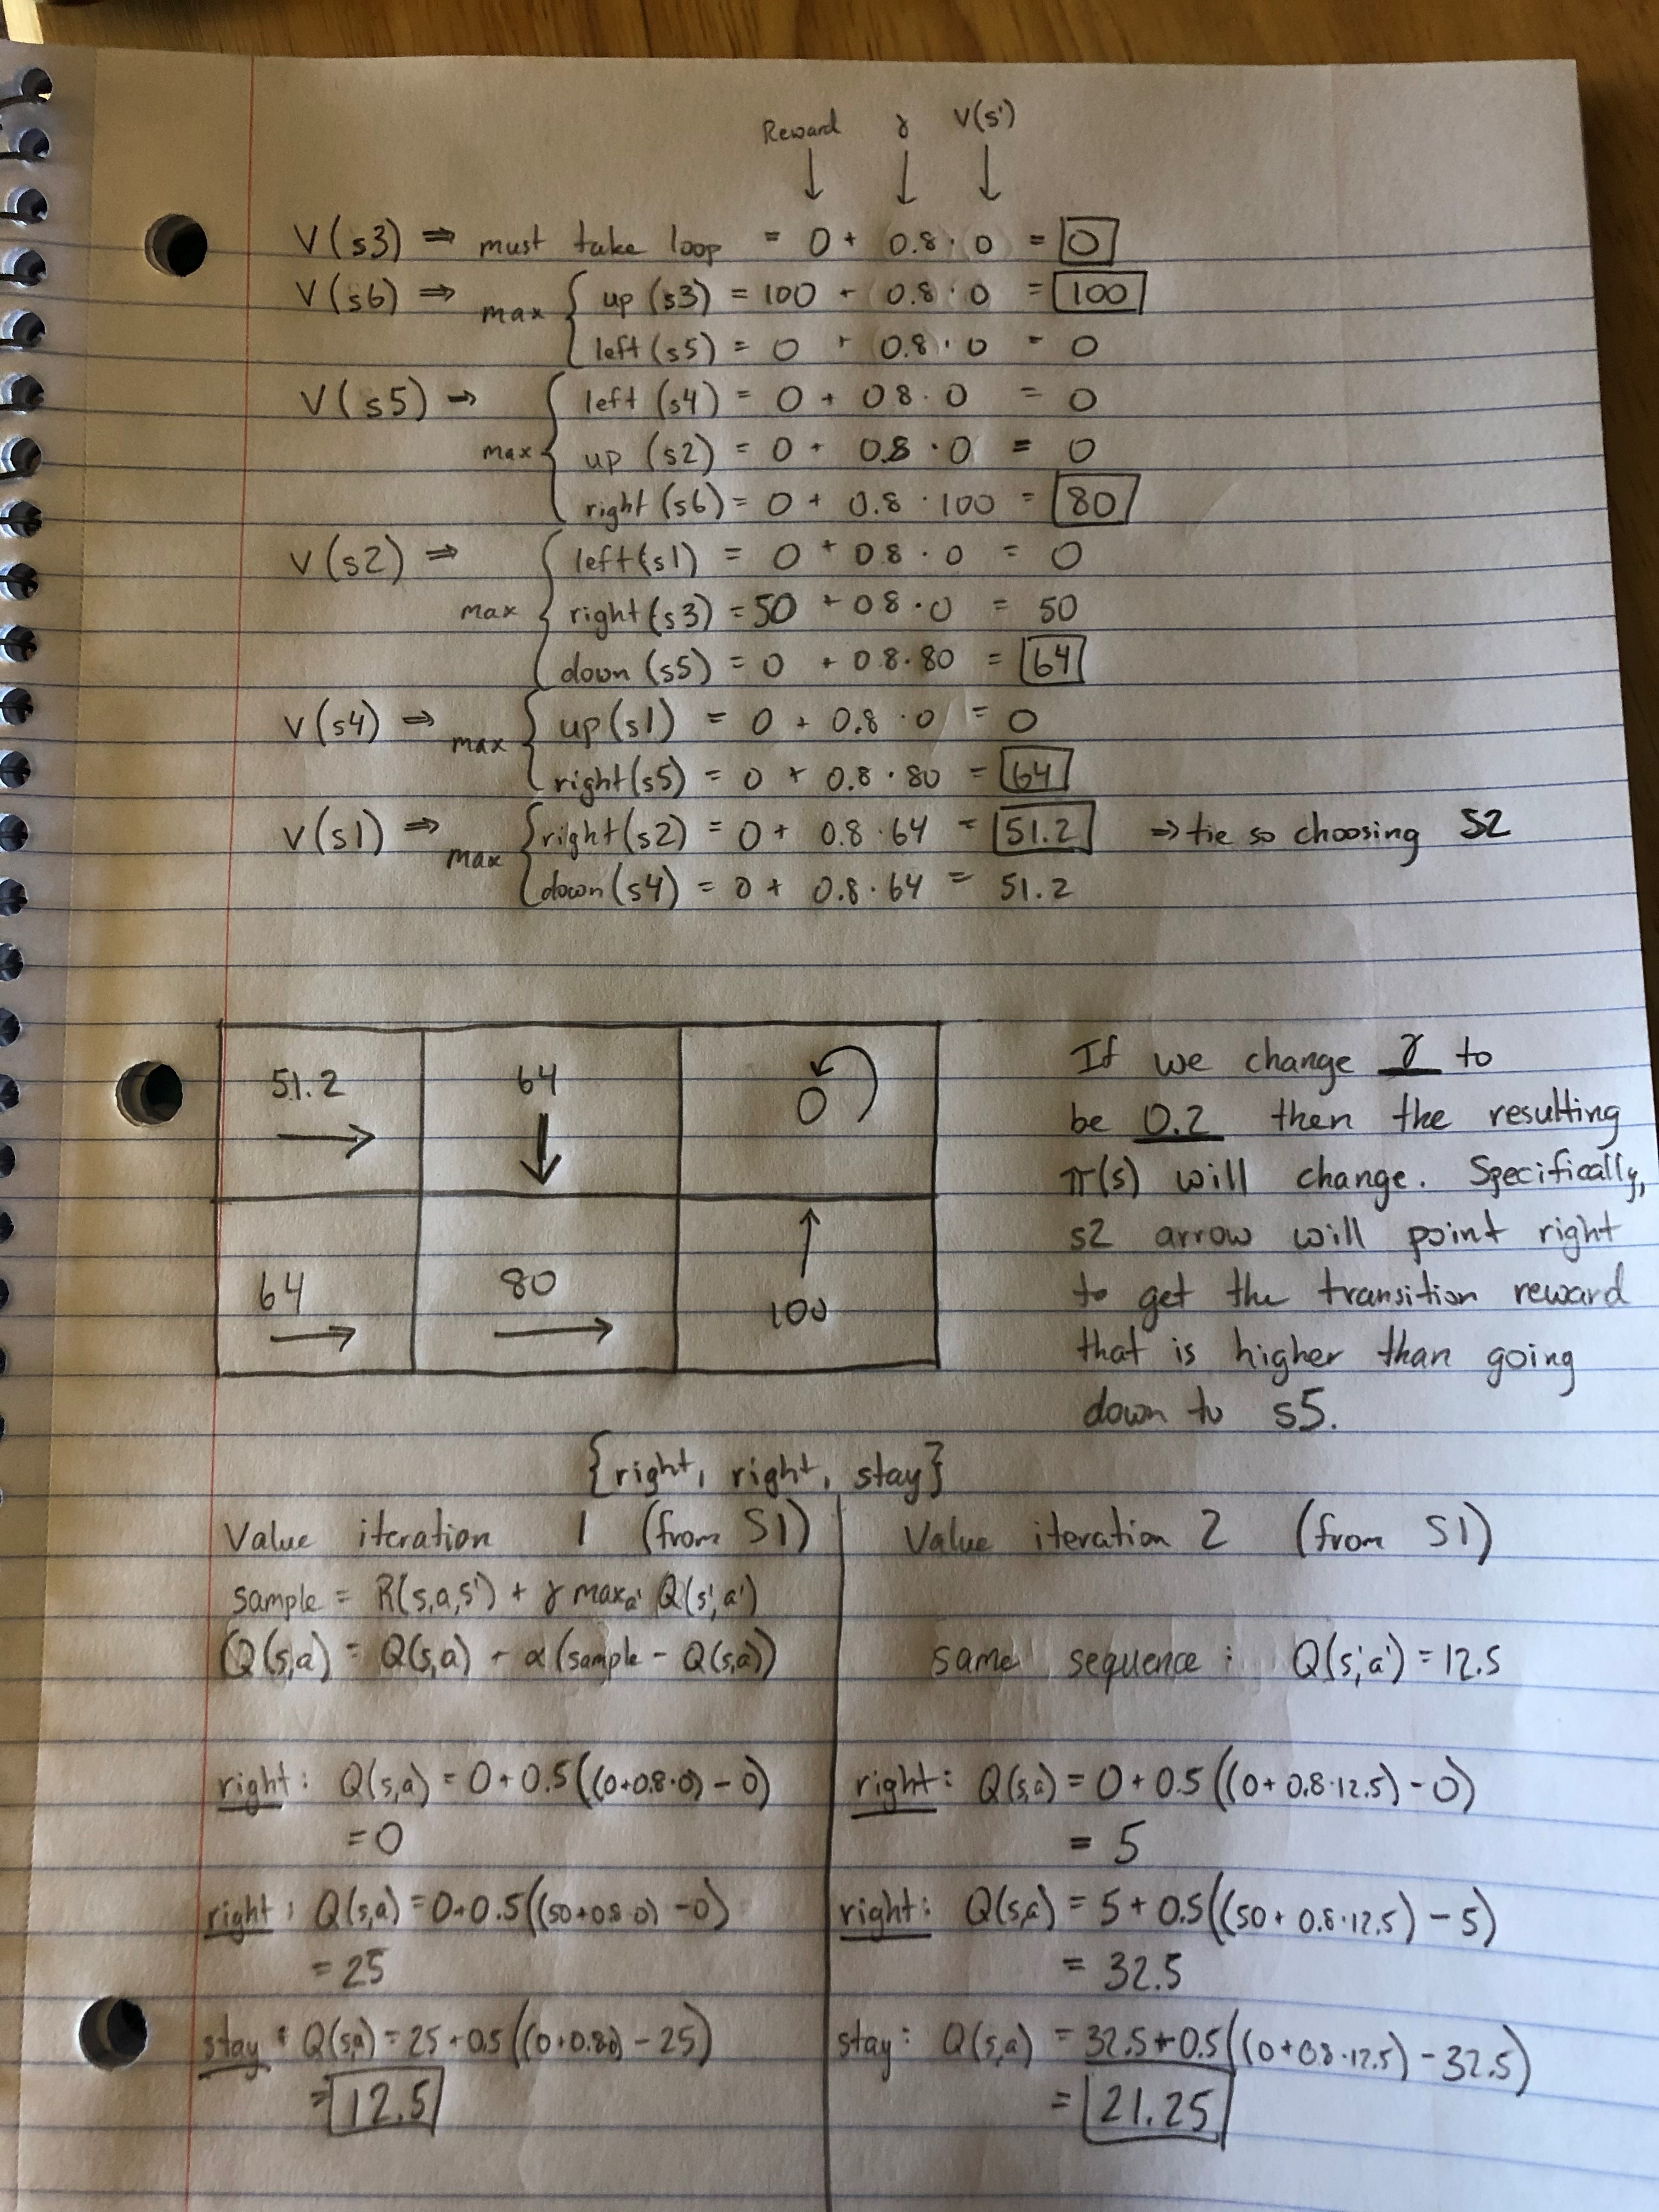 Reward γ V(s')
↓ ↓ ↓
V(s3) ⇒ must take loop = 0 + 0.8 · 0 = 0
V(s6) ⇒ max { up (s3) = 100 + 0.8 · 0 = 100
left (s5) = 0 + 0.8 · 0 = 0
V(s5) → max { left (s4) = 0 + 0 8 · 0 = 0
up (s2) = 0 + 0.8 · 0 = 0
right (s6) = 0 + 0.8 · 100 = 80
V(s2) ⇒ max { left (s1) = 0 + 0 8 · 0 = 0
right (s3) = 50 + 0 8 · 0 = 50
down (s5) = 0 + 0 8 · 80 = 64
V(s4) ⇒ max { up (s1) = 0 + 0.8 · 0 = 0
right (s5) = 0 + 0.8 · 80 = 64
V(s1) ⇒ max { right (s2) = 0 + 0.8 · 64 = 51.2 ⇒ tie so choosing S2
down (s4) = 0 + 0.8 · 64 = 51.2
51.2 → 64 ↓ 0
64 → 80 → 100 ↑
If we change γ to
be 0.2 then the resulting
π(s) will change. Specifically,
s2 arrow will point right
to get the transition reward
that is higher than going
down to s5.
{right, right, stay}
Value iteration 1 (from S1)
sample = R(s,a,s') + γ max a' Q(s',a')
Q(s,a) = Q(s,a) + α(sample - Q(s,a))
right: Q(s,a) = 0 + 0.5((0+0.8·0) - 0)
= 0
right: Q(s,a) = 0+0.5((50+0.8·0) - 0)
= 25
stay: Q(s,a) = 25 + 0.5((0+0.80) - 25)
= 12.5
Value iteration 2 (from S1)
same sequence: Q(s',a') = 12.5
right: Q(s,a) = 0 + 0.5((0 + 0.8·12.5) - 0)
= 5
right: Q(s,a) = 5 + 0.5((50 + 0.8·12.5) - 5)
= 32.5
stay: Q(s,a) = 32.5+0.5((0+0.8·12.5) - 32.5)
= 21.25